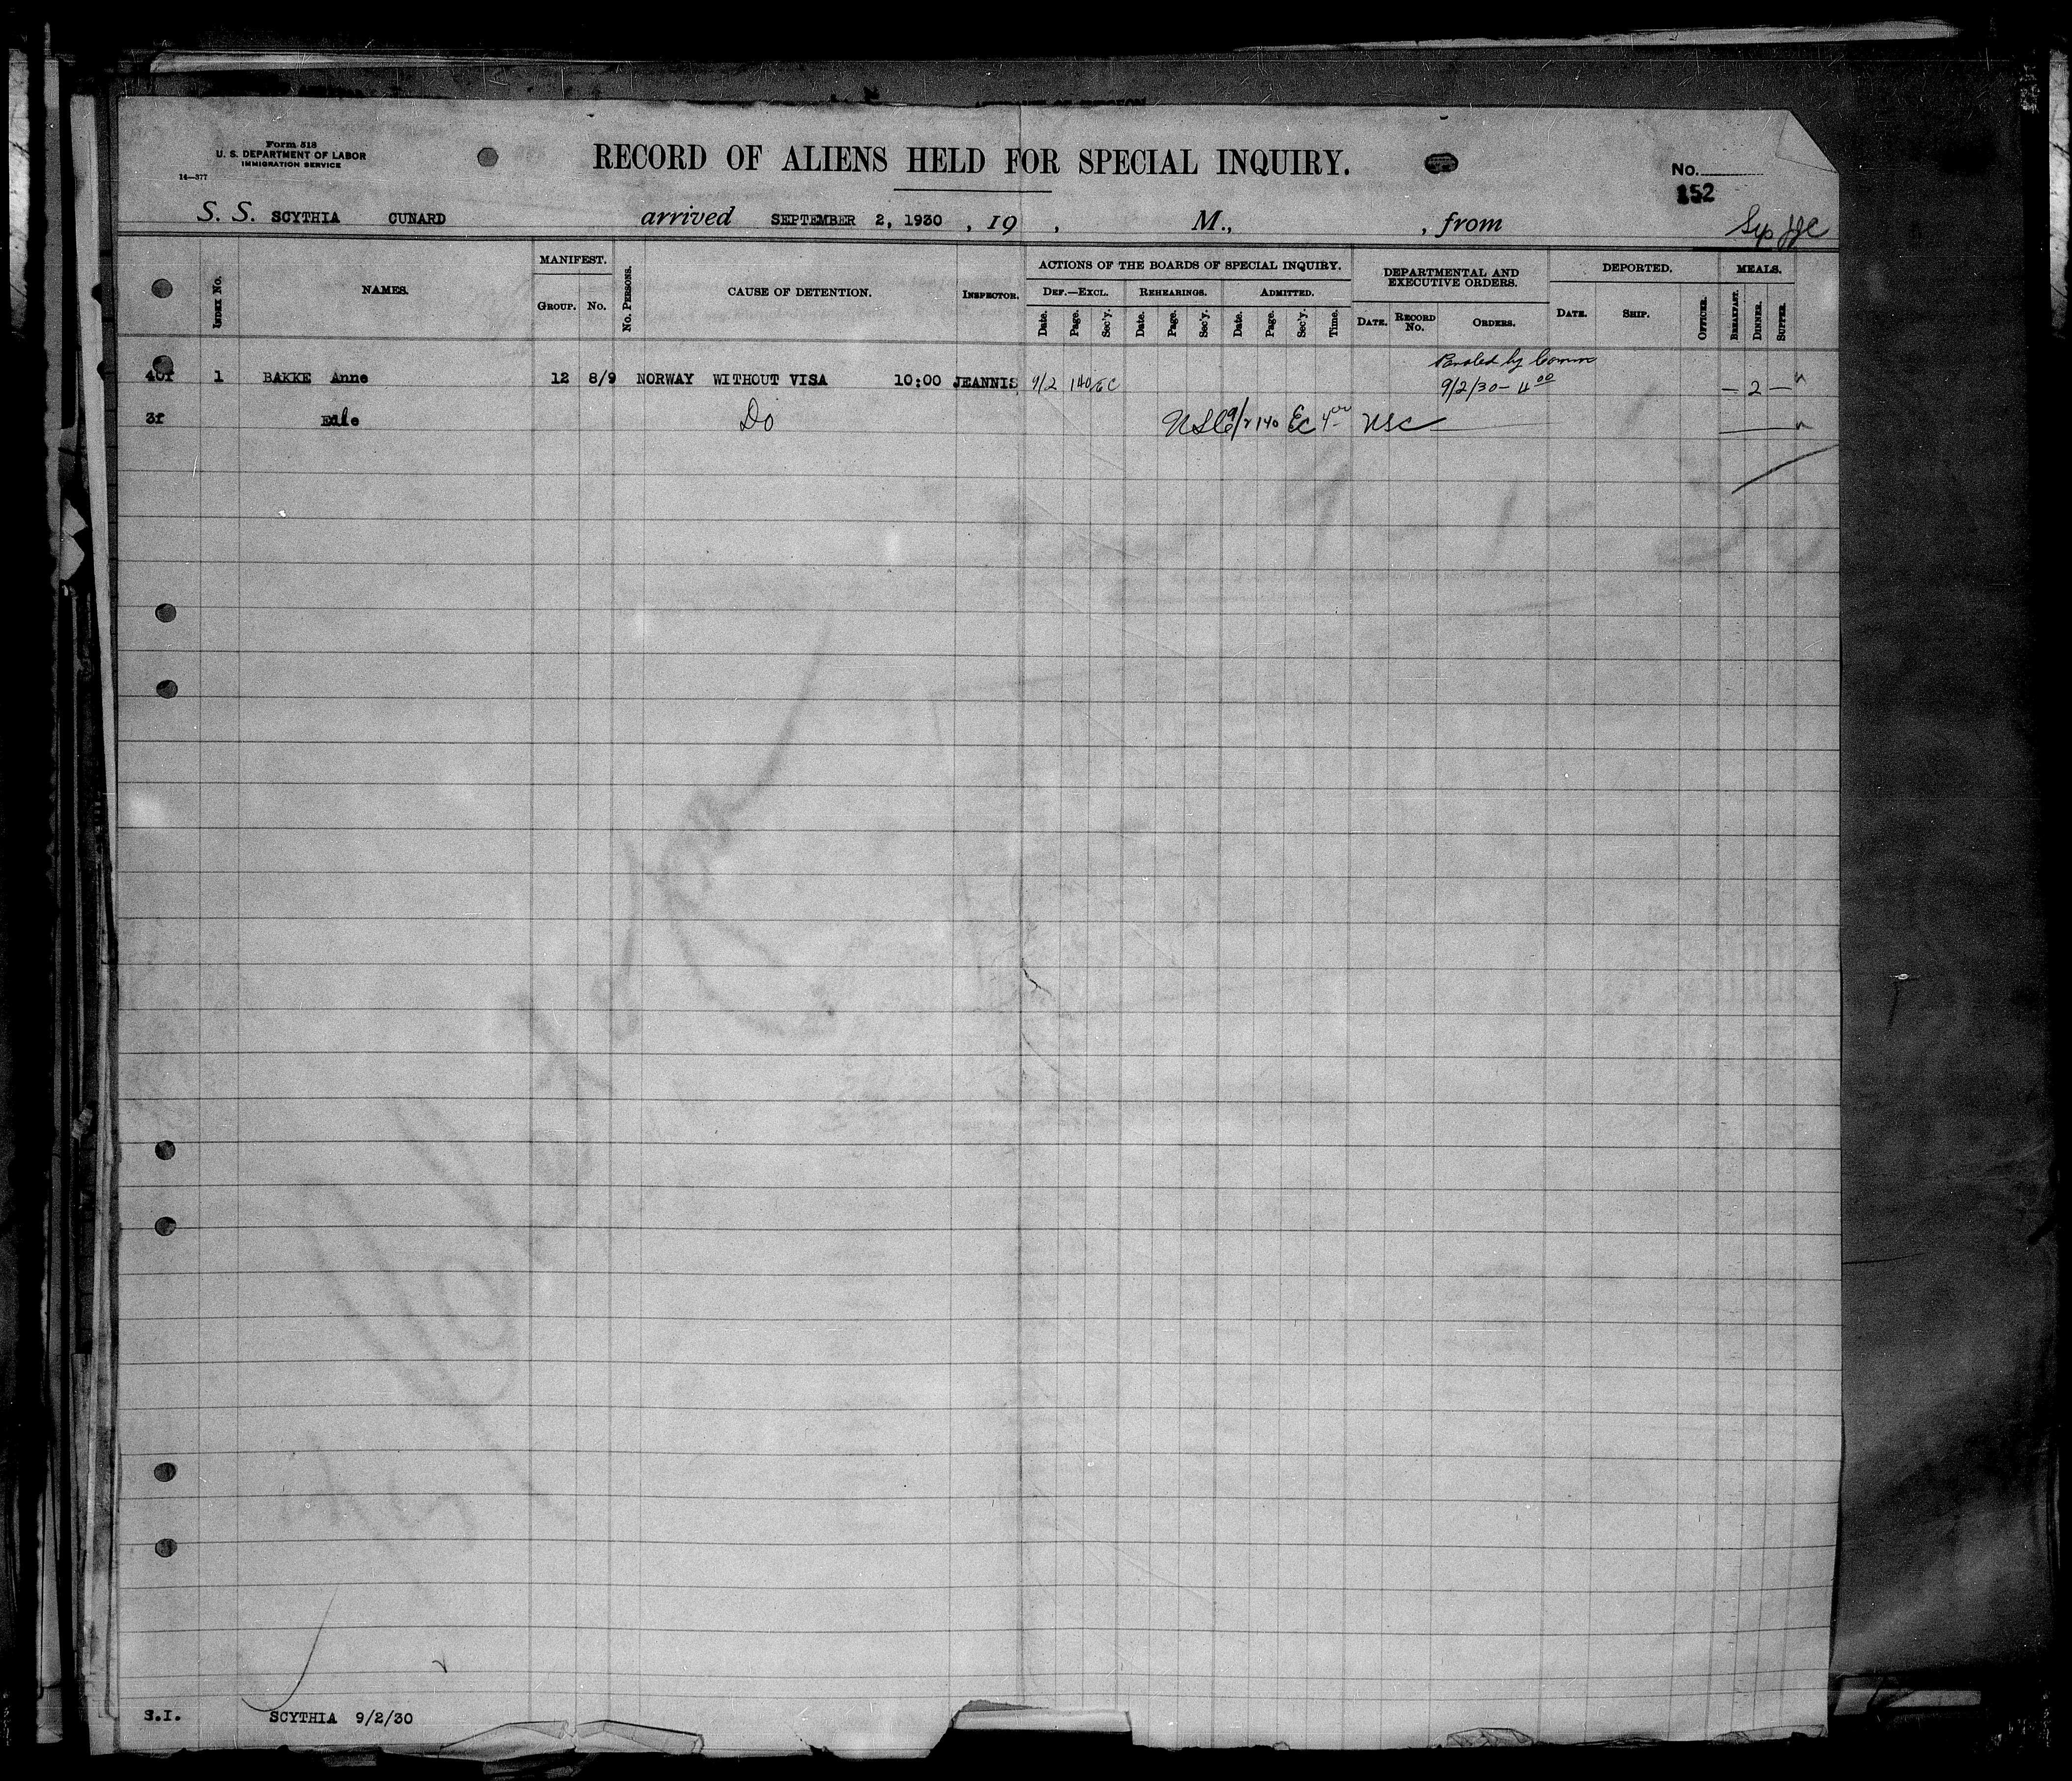 Form 518
U. S. DEPARTMENT OF LABOR
IMMIGRATION SERVICE
14—377
RECORD OF ALIENS HELD FOR SPECIAL INQUIRY.
No.
152
S. S. SCYTHIA CUNARD arrived SEPTEMBER 2, 1930 , 19 , M., , from
Index No.
NAMES.
MANIFEST.
Group. No.
No. Persons.
CAUSE OF DETENTION.
Inspector.
ACTIONS OF THE BOARDS OF SPECIAL INQUIRY.
Def.—Excl. Rehearings. Admitted.
Date. Page. Sec'y. Date. Page. Sec'y. Date. Page. Sec'y. Time.
DEPARTMENTAL AND
EXECUTIVE ORDERS.
Date. Record No. Orders.
DEPORTED.
Date. Ship. Officer.
MEALS.
Breakfast. Dinner. Supper.
Paroled by Comm
40f 1 BAKKE Anne 12 8/9 NORWAY WITHOUT VISA 10:00 JEANNIS 9/2 140 EC 9/2/30 – 4 00 — 2 —
3f Do 9/2 140 EC 4 00 USC
S.I. SCYTHIA 9/2/30